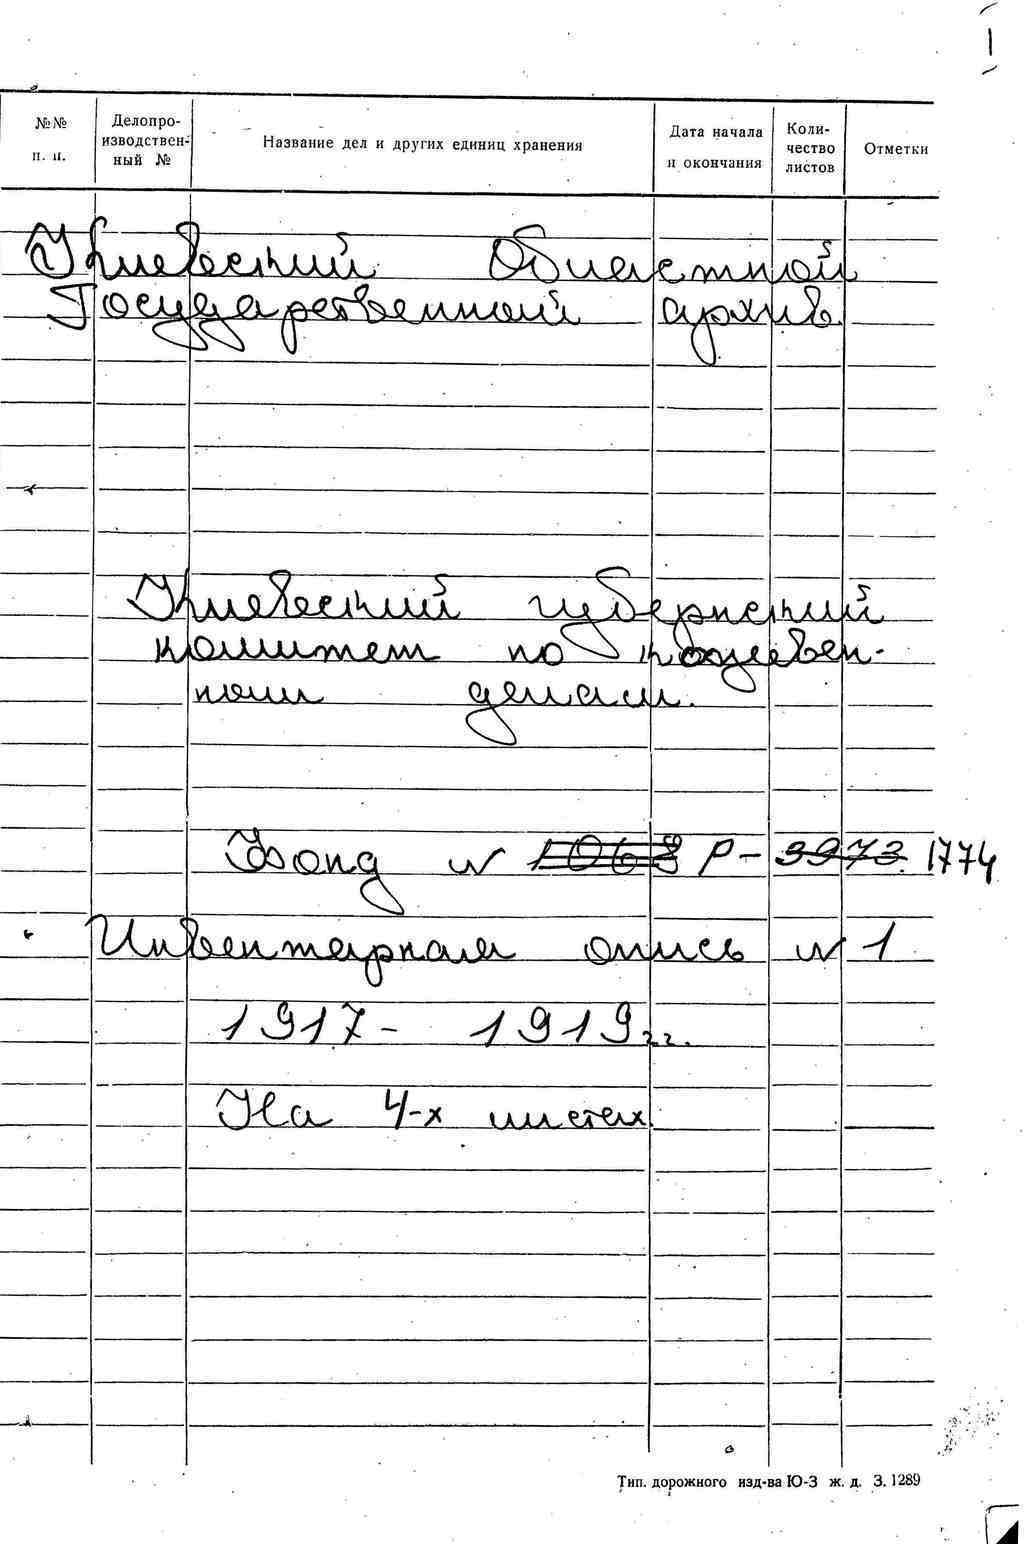 №№ п. п. | Делопроизводствен-ный № | Название дел и других единиц хранения | Дата начала и окончания | Коли-чество листов | Отметки
Киевский Областной
Государственный архив.
Киевский губернский
комитет по кожевен-
ным делам.
Фонд № 1068 Р-3973. 1774
Инвентарная опись № 1
1917- 1919 г.г.
На 4-х листах.
Тип. дорожного изд-ва Ю-З ж. д. З. 1289